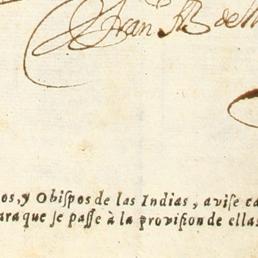 Fran.co
os, y Obiſpos de las Indias, aviſe ta
ara que ſe paſſe à la proviſion de ellas